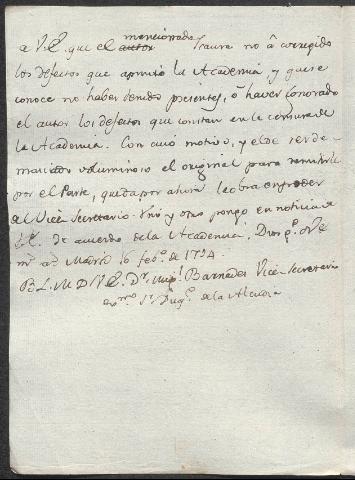 mencionado
a V.E. que el autor Isaura no à corregido
los defectos que apuntó la Academia, y que se
conoce no haber tenidos presentes, o haver ignorado
el autor los defectos que constan en la censura de
la Academia. Con cuio motivo, y el de ser de-
masiado voluminoso el original para remitirle
por el Parte, queda por ahora la obra en poder
del Vice Secretario. Uno y otro pongo en noticia de
V.E. de acuerdo de la Academia. Dios g.e a V.E.
m.s a.s Madrid 16 feb.o de 1754.
B. L. M. D V.E. D.r Mig.l Barnades Vice-Secretario
ex.mo S.r Duq.e de la